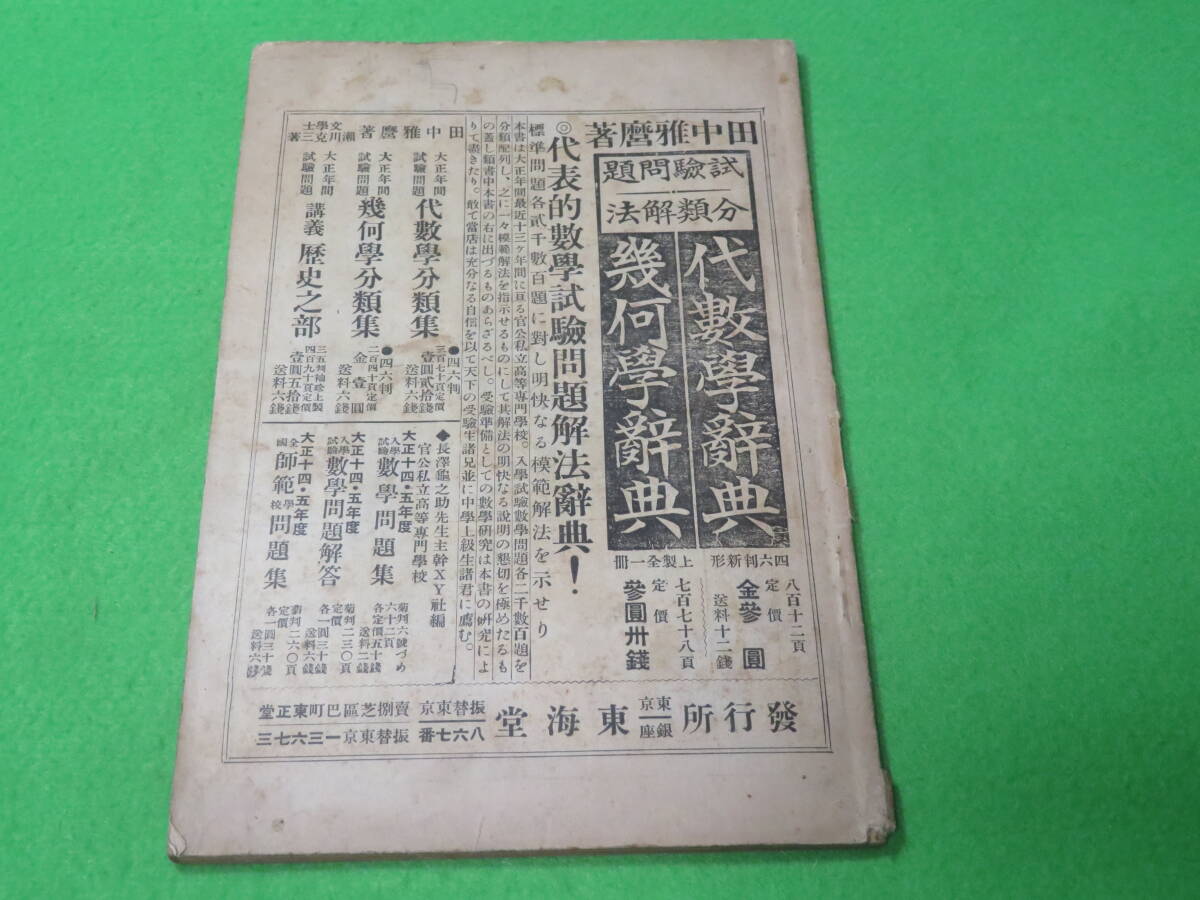 田中雅麿著
試驗問題
分類解法
代數學辭典
幾何學辭典
四六判新形 上製全一冊
八百十二頁
定價 金參圓
送料十二錢
七百七十八頁
定價 參圓卅錢
◎代表的數學試驗問題解法辭典！
標準問題各貳千數百題に對し明快なる模範解法を示せり
本書は大正年間最近十三ヶ年間に亘る官公私立高等專門學校。入學試驗數學問題各二千數百題を
分類配列し、之に一々模範解法を指示せるものにして其解法の明快なる說明の懇切を極めたるも
の蓋し類書中本書の右に出づるものあらざるべし。受驗準備としての數學研究は本書の硏究によ
りて盡きたり。敢て當店は充分なる自信を以て天下の受驗生諸兄並に中學上級生諸君に薦む。
田中雅麿著
大正年間
試驗問題
代數學分類集
●四六判
三百七十頁定價
壹圓貳拾錢
送料六錢
大正年間
試驗問題
幾何學分類集
●四六判
二百四十頁定價
金壹圓
送料六錢
文學士 瀨川克三著
大正年間
試驗問題
講義 歷史之部
三五判袖珍上製
四百九十頁定價
壹圓五拾錢
送料六錢
◆長澤龜之助先生主幹XY社編
官公私立高等專門學校
大正十四・五年度
入學試驗 數學問題集
菊判六號づめ
六十二頁
各定價五十錢
送料二錢
大正十四・五年度
入學試驗 數學問題解答
菊判二三〇頁
定價
各一圓三十錢
送料六錢
大正十四・五年度
全國 師範學校 問題集
菊判二六〇頁
定價
各一圓三十錢
送料六錢
發行所 東京銀座 東海堂 振替東京八六七番
賣捌芝區巴町東正堂
振替東京一三六七三